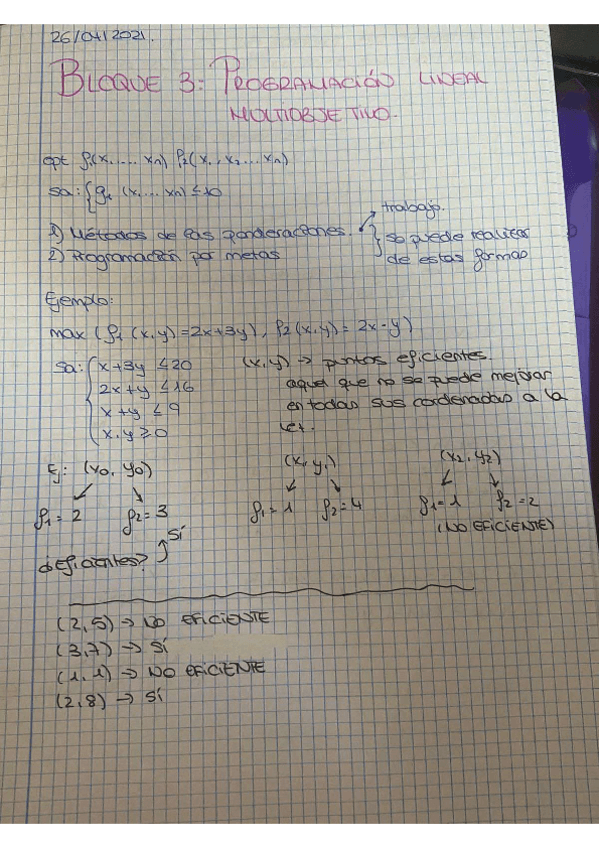 26/04/2021.
BLOQUE 3: PROGRAMACIÓN LINEAL
MULTIOBJETIVO.
opt f1(x1.... xn) f2(x1, x2... xn)
sa: { g1 (x1... xn) ≤ 10
1) Métodos de las ponderaciones. → trabajo.
2) Programación por metas } se puede realizar
de estas formas
Ejemplo:
max (f1 (x,y) = 2x+3y), f2(x,y) = 2x-y)
sa: { x+3y ≤ 20 (x,y) → puntos eficientes.
2x+y ≤ 16 aquel que no se puede mejorar
x+y ≤ 9 en todas sus cordenadas a la
x,y ≥ 0 vez.
Ej: (x0, y0) (x1, y1) (x2, y2)
f1 = 2 f2 = 3 f1 = 1 f2 = 4 f1 = 1 f2 = 2
Sí (NO EFICIENTE)
¿eficientes?
(2,5) → NO EFICIENTE
(3,7) → Sí
(1,1) → NO EFICIENTE
(2,8) → Sí